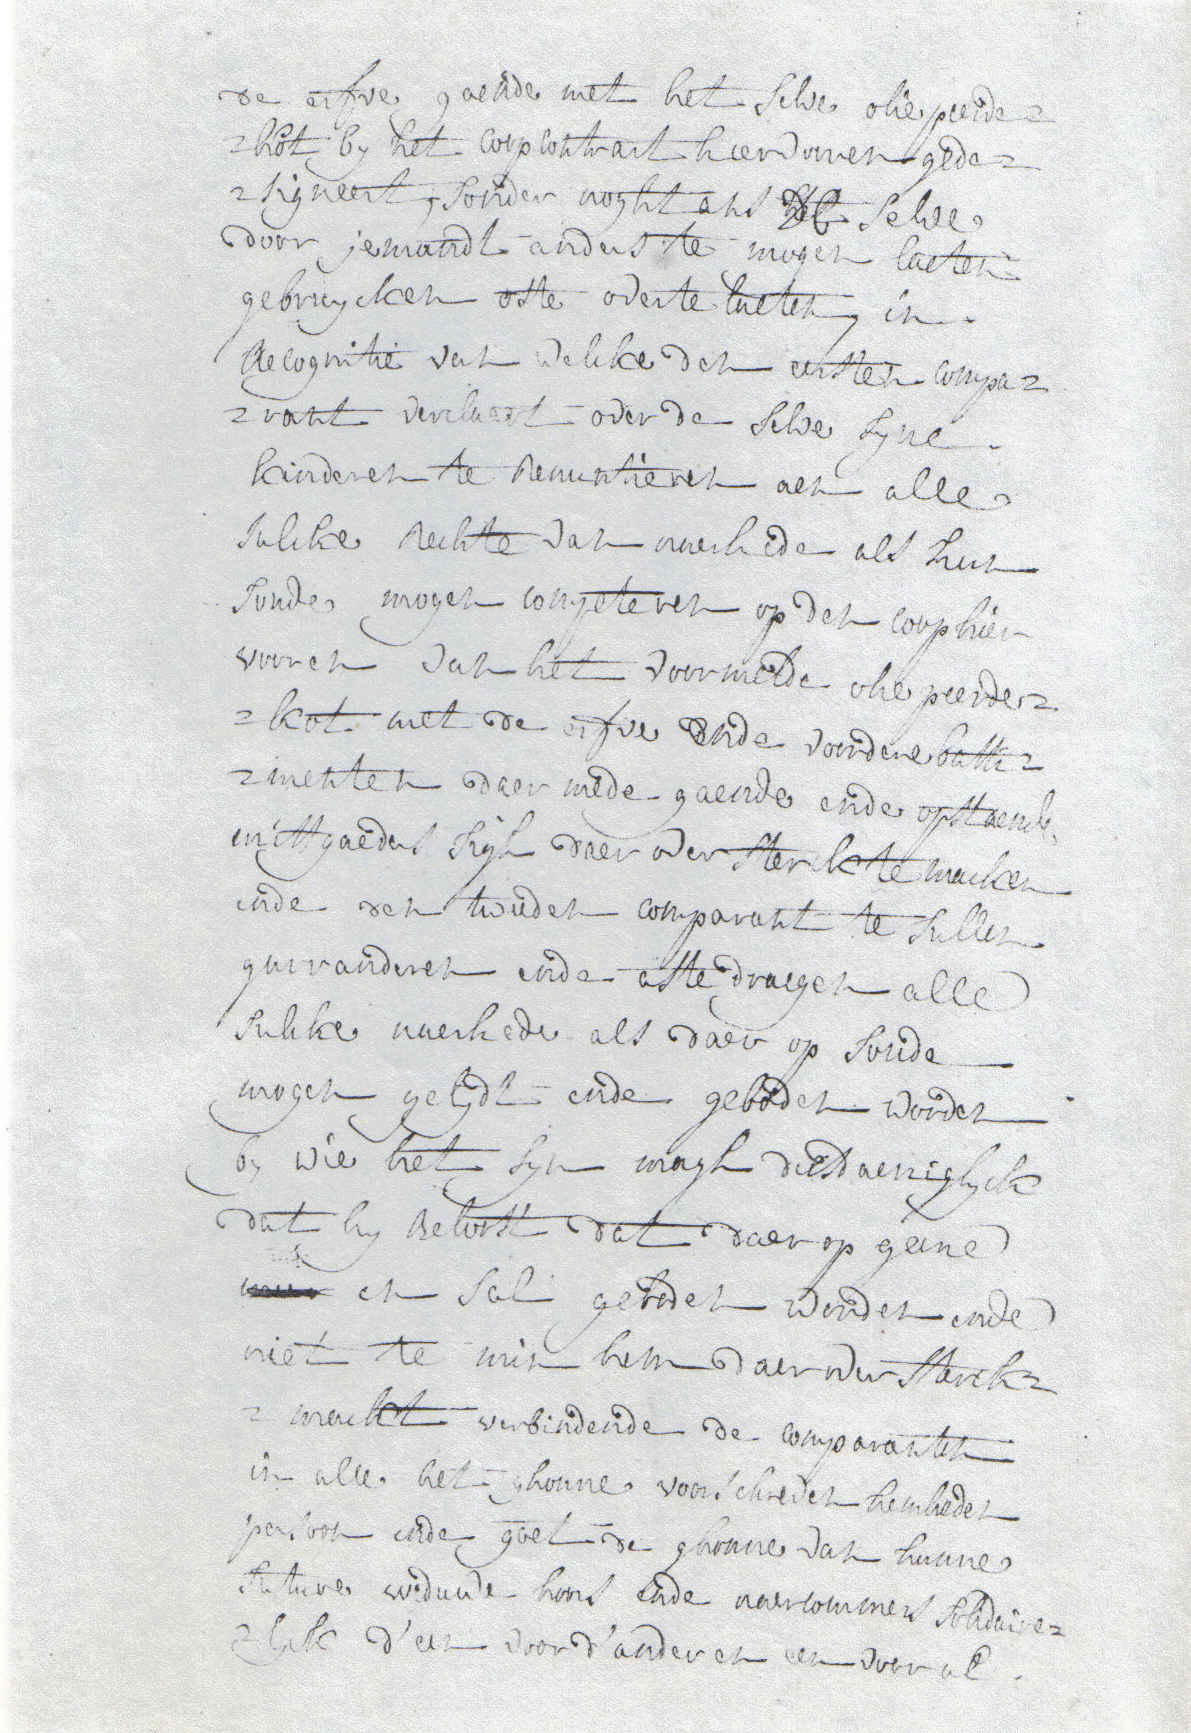 de erfve gaende met het selve olie peerde=
=kot by het coopcontract hiervooren gede=
=signeert, sonder noghtans het selve
door jemandt anders te mogen laeten
gebruycken ofte over te laeten, in
Recognitie van welcke den eersten compa=
=rant verclaert over de selve syne
kinderen te Renuntieren aen alle
sulcke Rechte van naerhede als hun
soude mogen competeren op den coop hier
vooren van het voormelde olie peerde=
=kot met de erfve ende voordere batti=
=menten daer mede gaende ende opstaende
mitsgaeders sigh daer over sterck te maecken
ende den tweeden comparant te sullen
guaranderen ende afte draegen alle
sulcke naerhede als daer op soude
mogen geleydt ende geboden worden
by wie het syn magh diesdaeniglyck
dat hy Belooft dat daer op geene
en sal geboden worden ende
niet te min hem daer over sterck=
=maeckt verbindende de comparanten
in alle het ghonne voorschreven hemlieden
persoon ende goet de ghonne van hunne
future weduwe hoors ende naercommers solidaire=
=lyck d'een voor d'ander en een voor al.